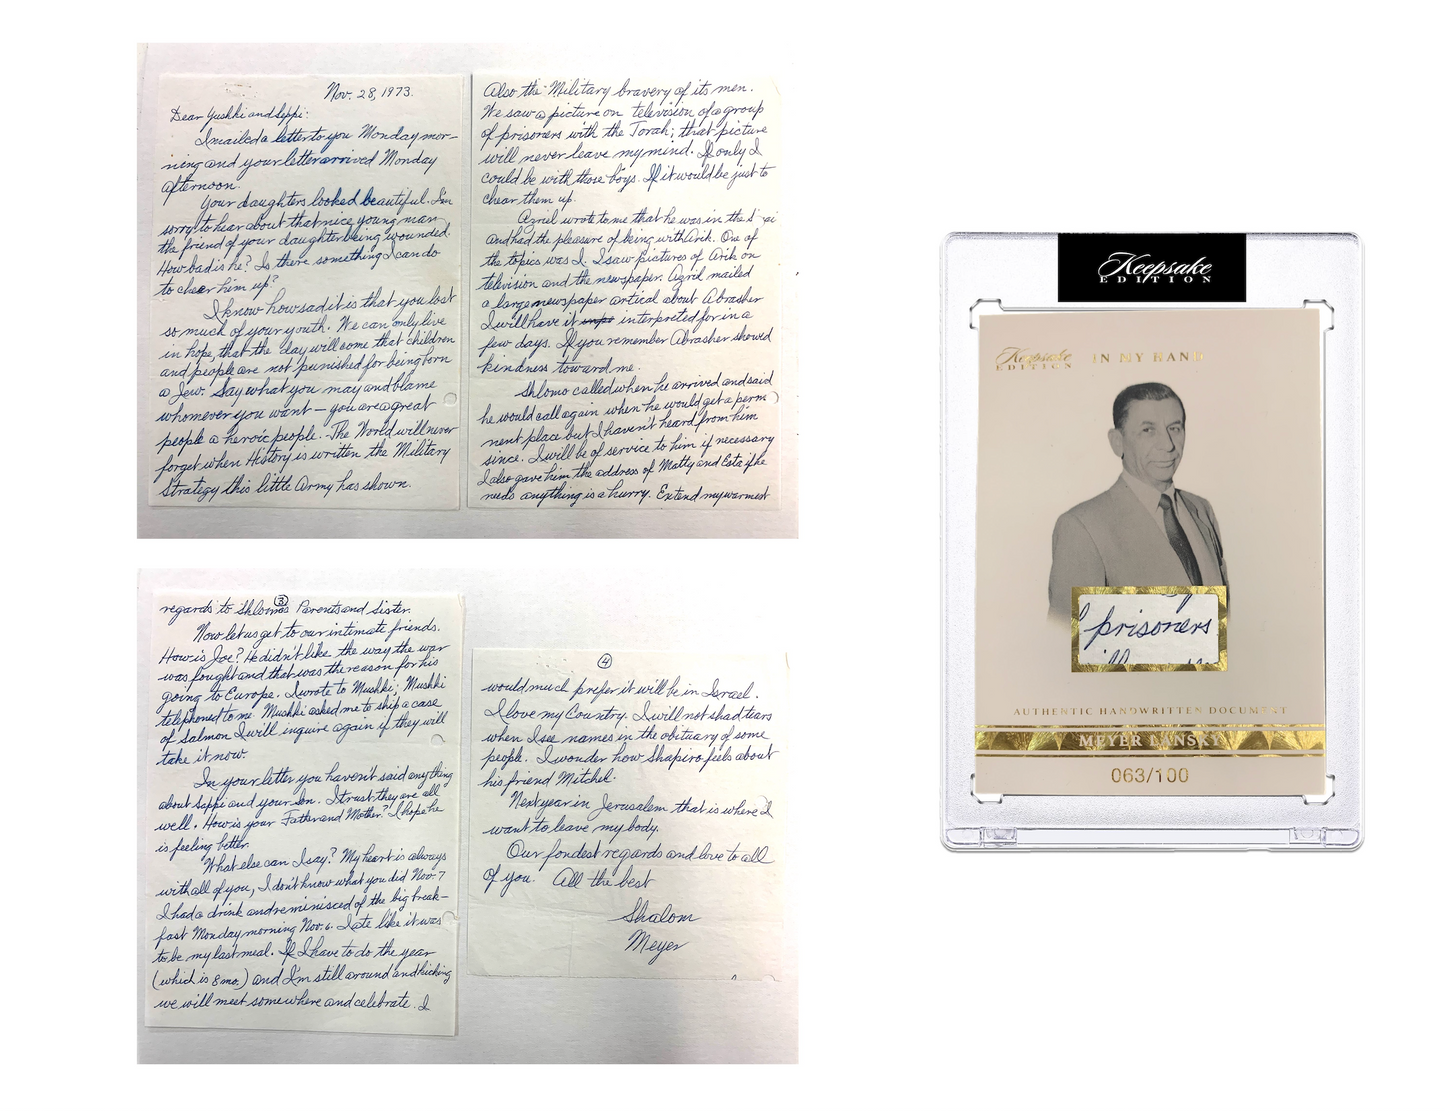 Nov. 28, 1973.
Dear Yushki and Seppi:
I mailed a letter to you Monday mor-
ning and your letter arrived Monday
afternoon.
Your daughters looked beautiful. I'm
sorry to hear about that nice young man
the friend of your daughter being wounded.
How bad is he? Is there something I can do
to cheer him up?
I know how sad it is that you lost
so much of your youth. We can only live
in hope, that the day will come that children
and people are not punished for being born
a Jew. Say what you may and blame
whomever you want - you are a great
people a heroic people. The World will never
forget when History is written the Military
Strategy this little Army has shown.
Also the Military bravery of its men.
We saw a picture on television of a group
of prisoners with the Torah; that picture
will never leave my mind. If only I
could be with those boys. If it would be just to
chear them up.
Azril wrote to me that he was in the
and had the pleasure of being with Arik. One of
the topics was I. I saw pictures of Arik on
television and the newspaper. Azril mailed
a large newspaper artical about Abrasher
I will have it interpreted for in a
few days. If you remember Abrasher showed
kindness toward me.
Shlomo called when he arrived and said
he would call again when he would get a perm
nent place but I haven't heard from him
since. I will be of service to him if necessary
I also gave him the address of Matty and Esta if he
needs anything is a hurry. Extend my warmest
3
regards to Shlomos Parents and Sister.
Now let us get to our intimate friends.
How is Joe? He didn't like the way the war
was fought and that was the reason for his
going to Europe. I wrote to Mushki; Mushki
telephoned to me. Mushki asked me to ship a case
of Salmon I will inquire again if they will
take it now.
In your letter you haven't said anything
about Seppi and your Son. I trust they are all
well. How is your Father and Mother? I hope he
is feeling better.
What else can I say? My heart is always
with all of you, I don't know what you did Nov. 7
I had a drink and reminisced of the big break-
fast Monday morning Nov. 6. I ate like it was
to be my last meal. If I have to do the year
(which is 8 mo.) and I'm still around and kicking
we will meet somewhere and celebrate. I
4
would much prefer it will be in Israel.
I love my Country. I will not shad tears
when I see names in the obituary of some
people. I wonder how Shapiro feels about
his friend Mitchel.
Next year in Jerusalem that is where I
want to leave my body.
Our fondest regards and love to all
of you. All the best
Shalom
Meyer
Keepsake
EDITION
Keepsake
EDITION
IN MY HAND
prisoners
AUTHENTIC HANDWRITTEN DOCUMENT
MEYER LANSKY
063/100